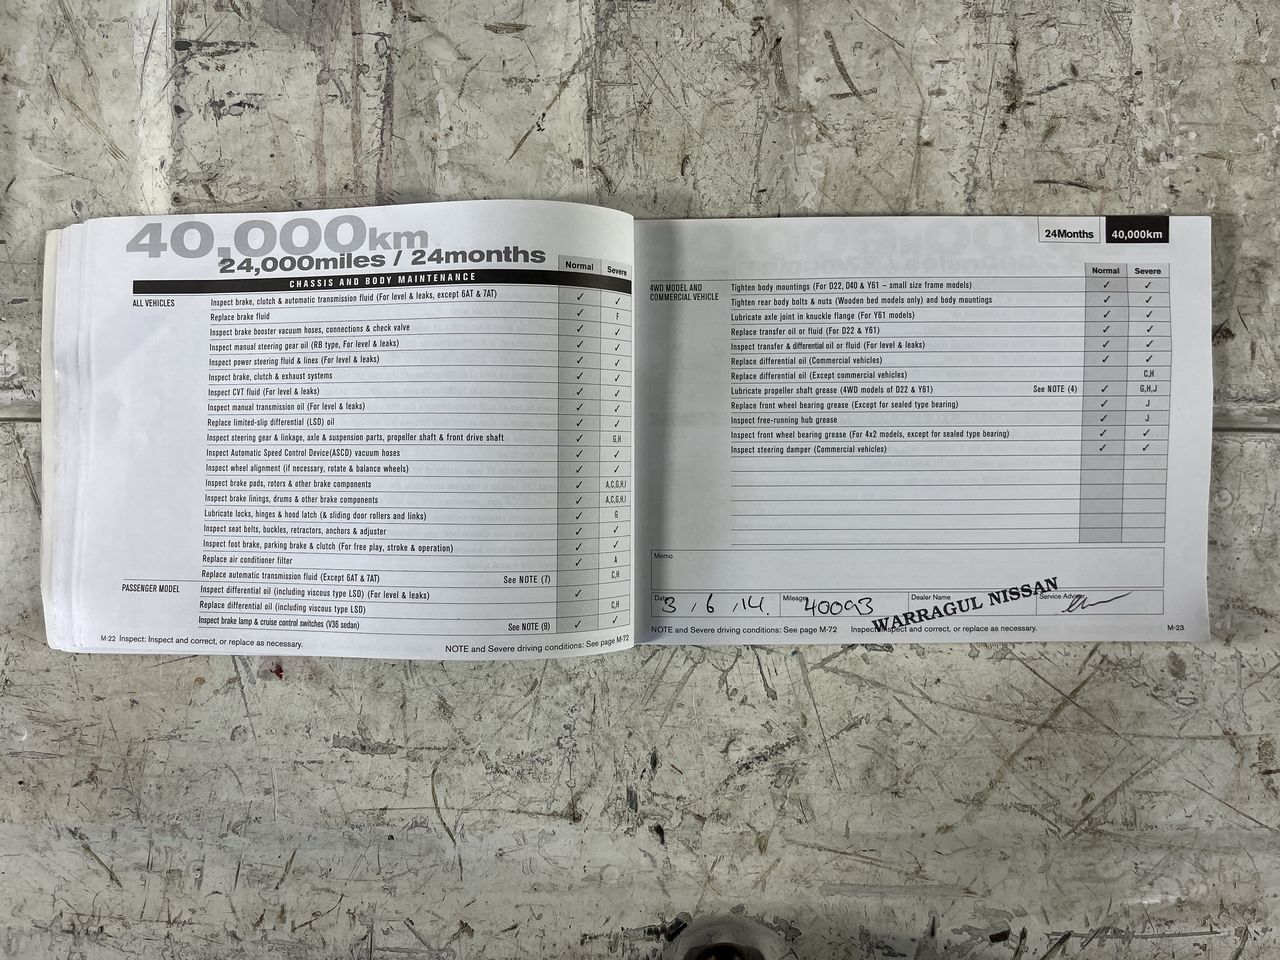 40,000km
24,000miles / 24months
CHASSIS AND BODY MAINTENANCE
Normal Severe
ALL VEHICLES
Inspect brake, clutch & automatic transmission fluid (For level & leaks, except 6AT & 7AT) ✓ ✓
Replace brake fluid ✓ F
Inspect brake booster vacuum hoses, connections & check valve ✓ ✓
Inspect manual steering gear oil (RB type, For level & leaks) ✓ ✓
Inspect power steering fluid & lines (For level & leaks) ✓ ✓
Inspect brake, clutch & exhaust systems ✓ ✓
Inspect CVT fluid (For level & leaks) ✓ ✓
Inspect manual transmission oil (For level & leaks) ✓ ✓
Replace limited-slip differential (LSD) oil ✓ ✓
Inspect steering gear & linkage, axle & suspension parts, propeller shaft & front drive shaft ✓ G,H
Inspect Automatic Speed Control Device(ASCD) vacuum hoses ✓ ✓
Inspect wheel alignment (if necessary, rotate & balance wheels) ✓ ✓
Inspect brake pads, rotors & other brake components ✓ A,C,G,H,I
Inspect brake linings, drums & other brake components ✓ A,C,G,H,I
Lubricate locks, hinges & hood latch (& sliding door rollers and links) ✓ G
Inspect seat belts, buckles, retractors, anchors & adjuster ✓ ✓
Inspect foot brake, parking brake & clutch (For free play, stroke & operation) ✓ ✓
Replace air conditioner filter ✓ A
Replace automatic transmission fluid (Except 6AT & 7AT) See NOTE (7) C,H
PASSENGER MODEL
Inspect differential oil (including viscous type LSD) (For level & leaks) ✓
Replace differential oil (including viscous type LSD) C,H
Inspect brake lamp & cruise control switches (V36 sedan) See NOTE (9) ✓ ✓
M-22 Inspect: Inspect and correct, or replace as necessary.
NOTE and Severe driving conditions: See page M-72
24Months 40,000km
Normal Severe
4WD MODEL AND
COMMERCIAL VEHICLE
Tighten body mountings (For D22, D40 & Y61 – small size frame models) ✓ ✓
Tighten rear body bolts & nuts (Wooden bed models only) and body mountings ✓ ✓
Lubricate axle joint in knuckle flange (For Y61 models) ✓ ✓
Replace transfer oil or fluid (For D22 & Y61) ✓ ✓
Inspect transfer & differential oil or fluid (For level & leaks) ✓ ✓
Replace differential oil (Commercial vehicles) ✓ ✓
Replace differential oil (Except commercial vehicles) C,H
Lubricate propeller shaft grease (4WD models of D22 & Y61) See NOTE (4) ✓ G,H,J
Replace front wheel bearing grease (Except for sealed type bearing) ✓ J
Inspect free-running hub grease ✓ J
Inspect front wheel bearing grease (For 4x2 models, except for sealed type bearing) ✓ ✓
Inspect steering damper (Commercial vehicles) ✓ ✓
Memo
Date 3 / 6 / 14. Mileage 40093 Dealer Name Service Advisor
WARRAGUL NISSAN
NOTE and Severe driving conditions: See page M-72 Inspect: Inspect and correct, or replace as necessary. M-23